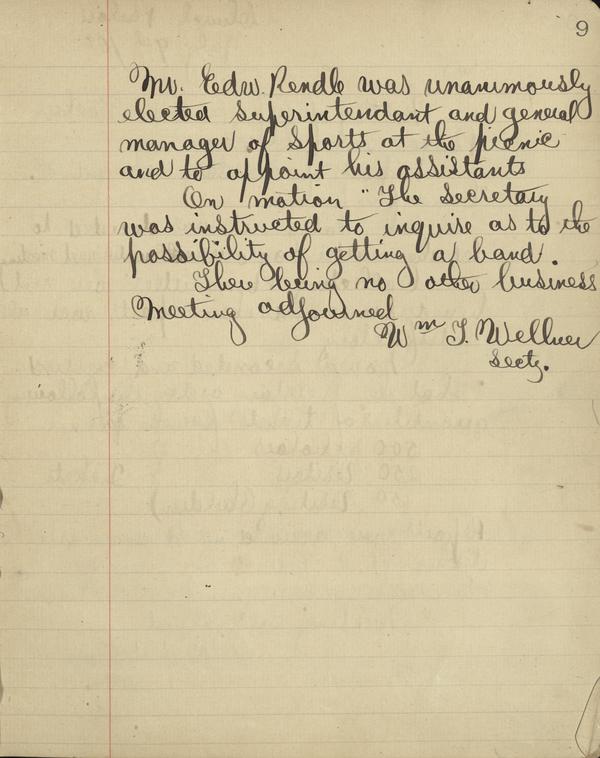 9
Mr. Edw. Rendle was unanimously
elected Superintendant and general
manager of Sports at the picnic
and to appoint his assistants
On motion "The Secretary
was instructed to inquire as to the
possibility of getting a band.
There being no other business
Meeting adjourned
Wm J. Wellner
Secty.